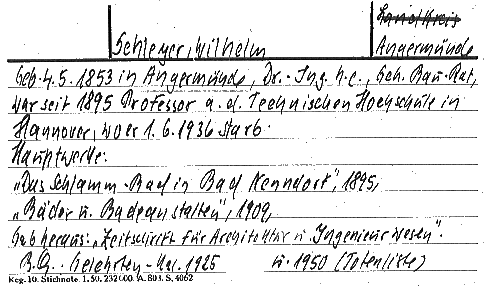 Landkreis
Schleyer, Wilhelm Angermünde
Geb. 4.5. 1853 in Angermünde, Dr.-Ing. h.c., Geh. Bau-Rat,
war seit 1895 Professor a. d. Technischen Hochschule in
Hannover, wo er 1.6.1936 starb.
Hauptwerke:
„Das Schlamm-Bad in Bad Nenndorf", 1895,
„Bäder u. Badeanstalten", 1909,
Gab heraus: „Zeitschrift für Architektur u. Ingenieurwesen".
B.Q.: Gelehrten-Kal. 1925 u. 1950 (Totenliste)
Keg. 10. Stichnote. 1. 50. 232 000. A. 803. S. 4062